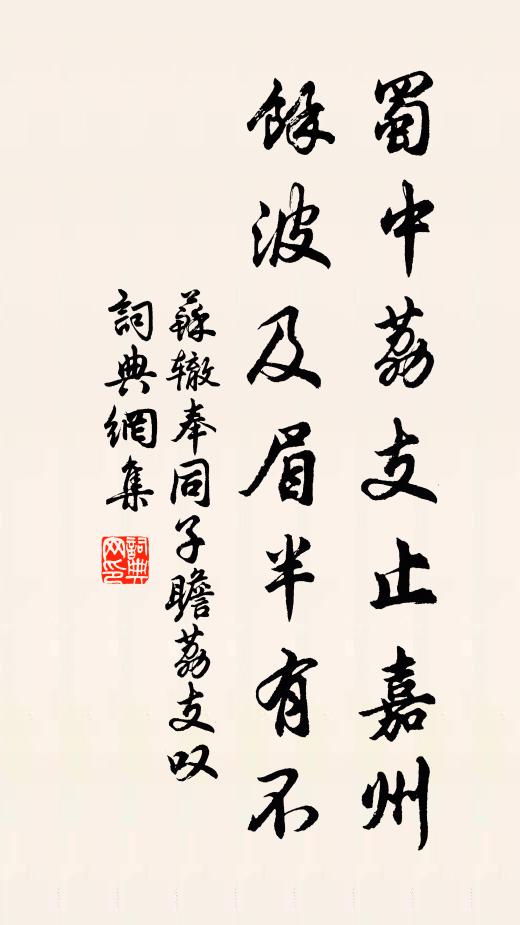 蜀中荔支止嘉州
餘波及眉半有不
蘇辙奉同子瞻荔支叹
詞典網集
詞典网印